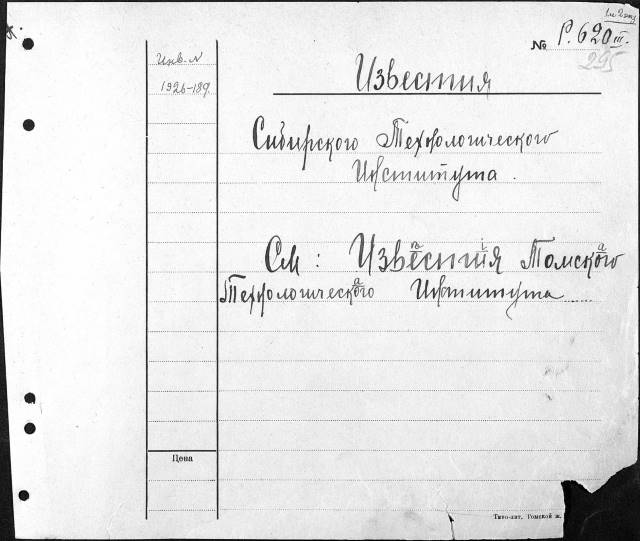 № Р. 620 III.
295
Инв. N
1926-189
Известия
Сибирского Технологического
Института.
См: Извѣстія Томскаго
Технологическаго Института
Цена
Типо-лит. Томской ж.